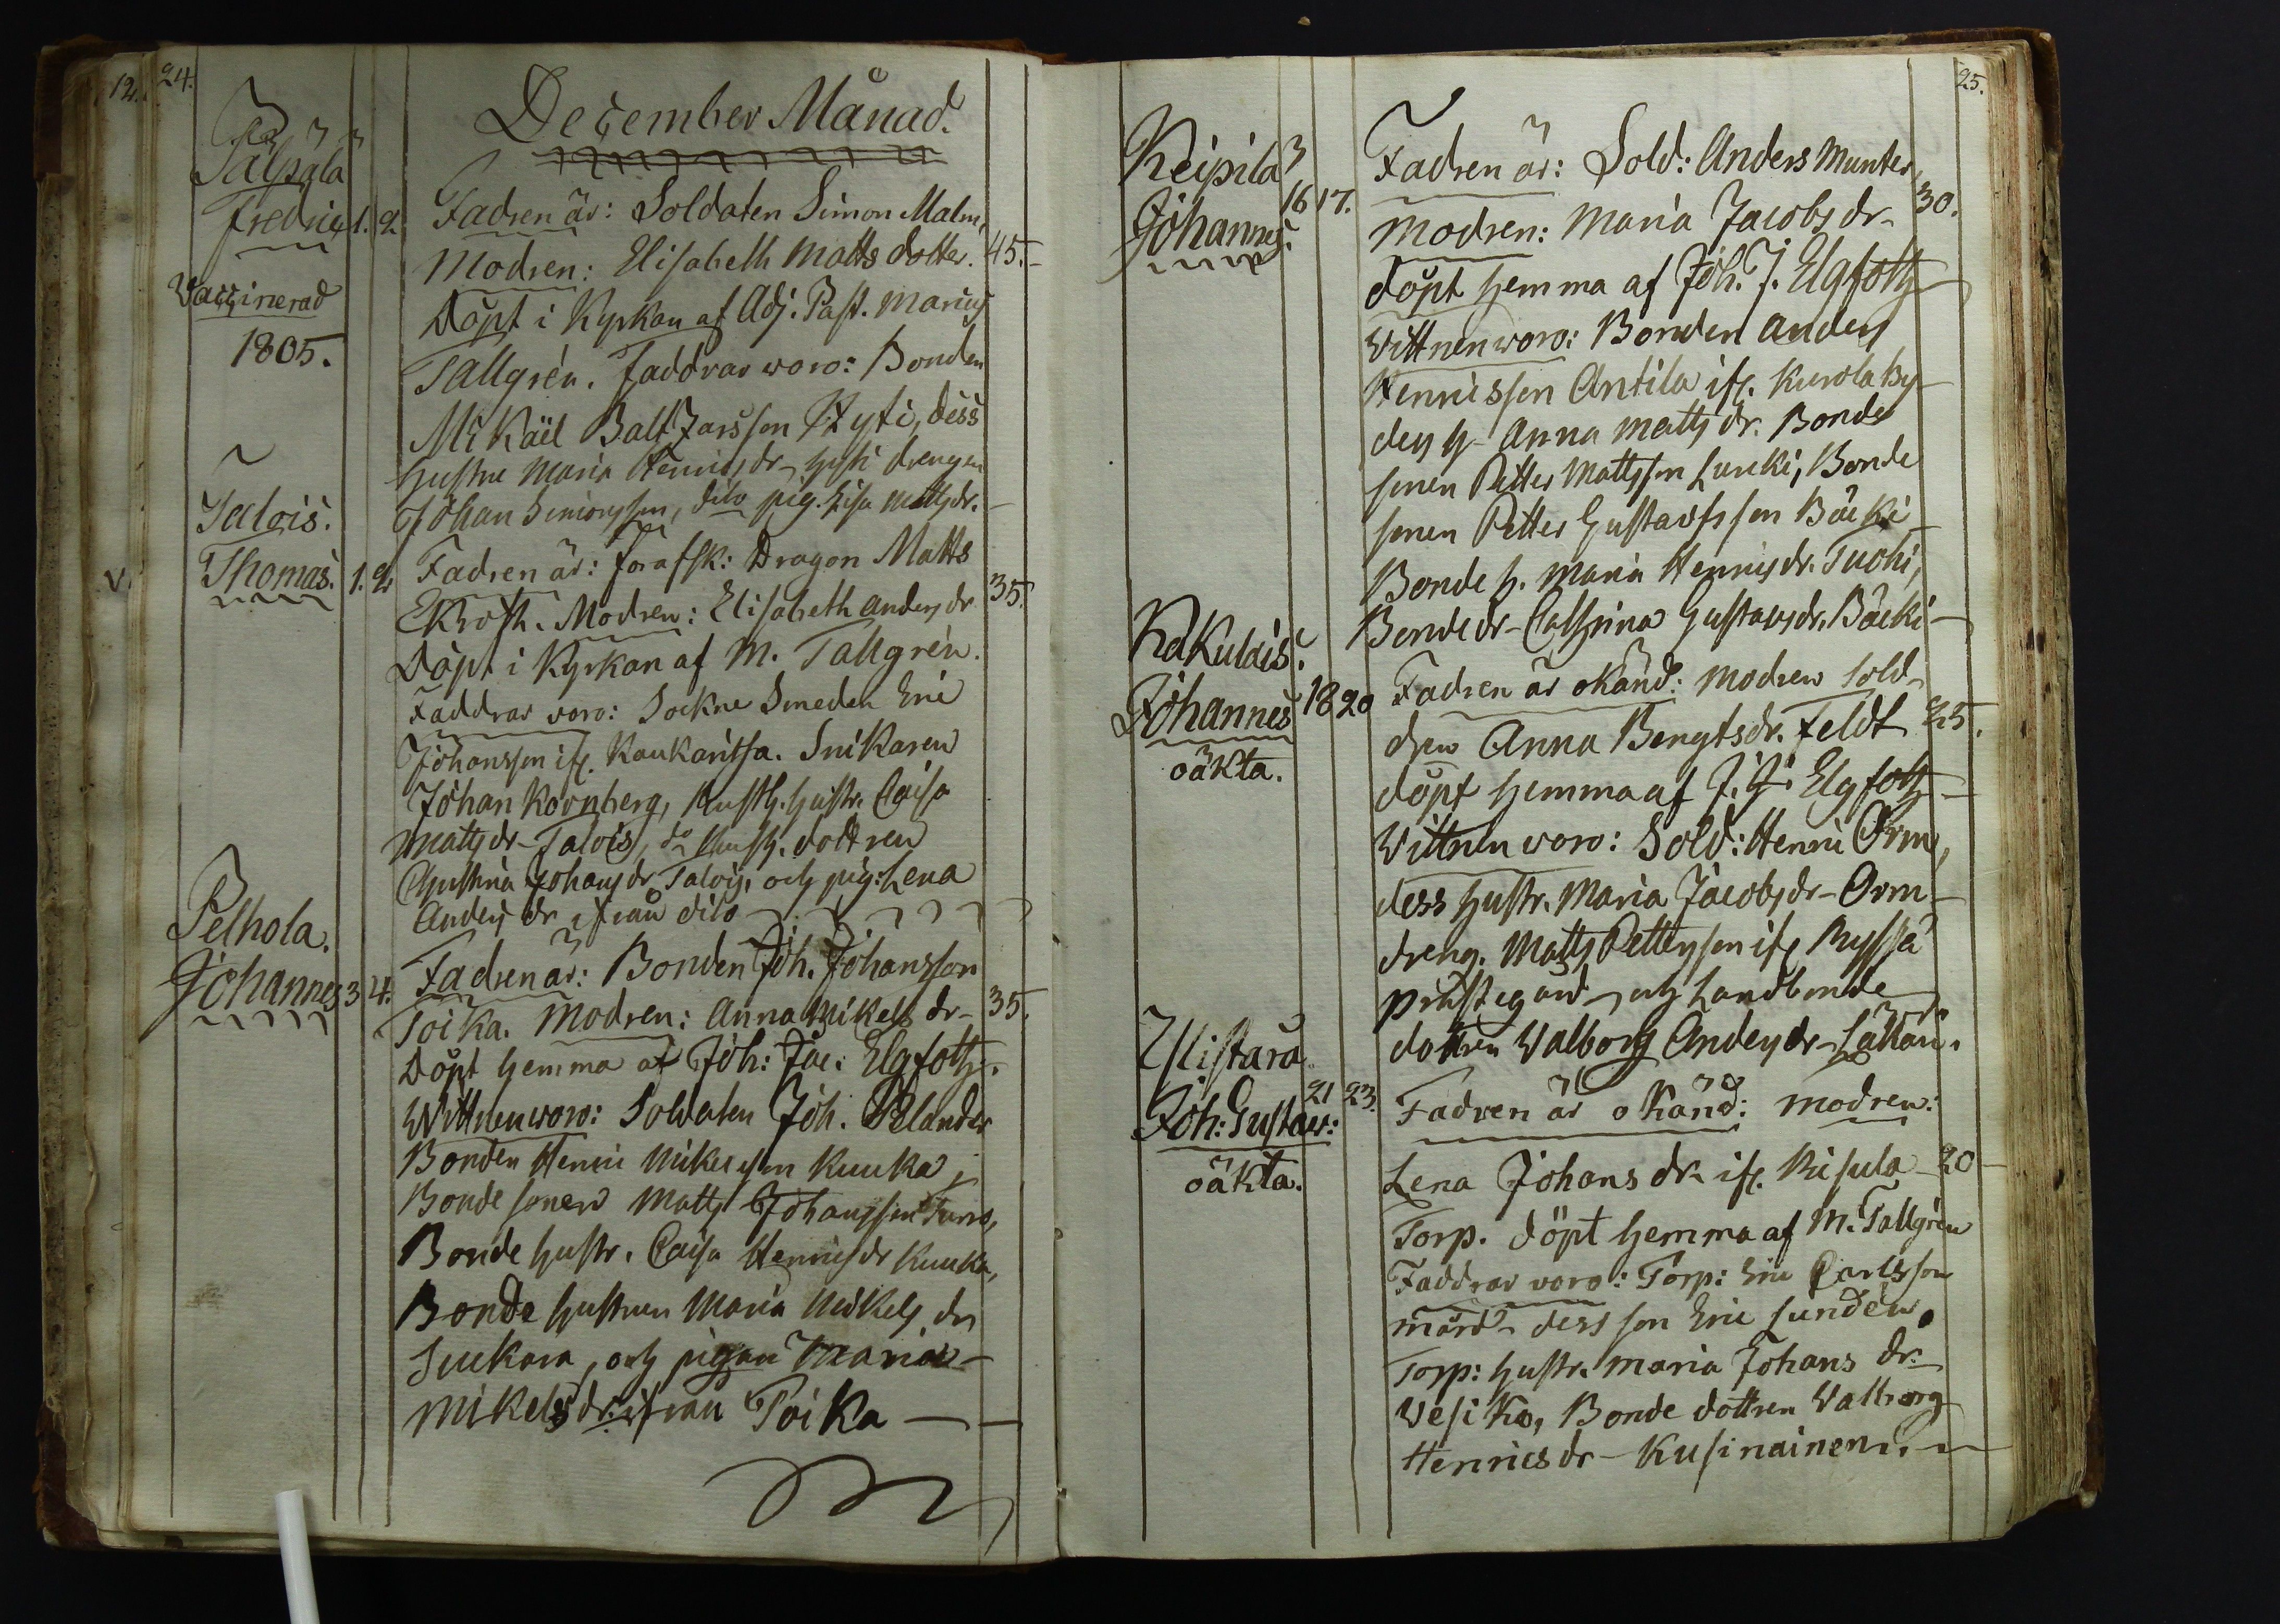 12.
24.
December Månad.
Pälpälä
Fredric 1. 2.
Vaccinerad
1805.
Fadren är: Soldaten Simon Malm,
Modren: Elisabeth Matts dotter. 45.
Döpt i Kyrkan af Adj. Past. Marcus
Tallgrén. Faddrar woro: Bonden
Mikäel Baltzarsson Hyti, dess
hustru Maria Henricsdr hyti drengen
Johan Simonsson, dito pig. Lisa Mattsdr.
Talois.
V. Thomas. 1. 2.
Fadren är: förafsk: Dragon Matts
Ekroth. Modren: Elisabeth Andersdr 35.
Döpt i Kyrkan af M. Tallgrén.
Faddrar voro: Sockne Smeden Eric
Johansson ifr. Kaukaritsa. Snikaren
Johan Kornberg, Rusth. hustr. Caisa
Mattsdr Talois, Rusth. dottren
Christina Johansdr Talois, och pig: Lena
Anders dr ifrån dito
Pelhola.
Johannes 3 4.
Fadren är: Bonden Joh. Johansson
Toika. Modren: Anna Mikels dr 35.
Döpt hemma af Joh: Jac: Elgfoth.
Wittnen woro: Soldaten Joh. Pelander
Bonden Henric Mikelsson Kuuka,
Bonde sonen Matts Johansson Turro,
Bonde hustr. Caisa Henricsdr Kuuka,
Bonde hustrun Maria Mikels dr
Suckara, och pigan Maria
Mikelsdr. ifrån Toika
25.
Keipilä
Johannes. 16 17.
Fadren är: Sold: Anders Munter,
Modren: Maria Jacobs dr 30.
döpt hemma af Joh. J. Elgfoth
Wittnen woro: Bonden Anders
Henricsson Antila ifr. Kurola by
dess h. Anna Matts dr. Bonde
sonen Petter Mattsson Lucki, Bonde
sonen Petter Gustavsson Bäcki
Bonde h. Maria Henricsdr. Tuohi,
Bonde dr Cathrina Gustavsdr. Bäcki
Kakulais.
Johannes 18 20
oäkta.
Fadren är okänd: Modren sold
dren Anna Bengtsdr. Feldt 25.
döpt hemma af J. J. Elgfoth
Wittnen woro: Sold: Henric Orm,
dess hustr. Maria Jacobsdr Orm
dreng. Matts Pettersson ifr Ryssä
prästegård och Landbonde
dottren Walborg Andersdr Låttan.
Ylistaro
Joh: Gustav: 21 23.
oäkta.
Fadren är okänd: Modren:
Lena Johans dr ifr. Risula 20
Torp. döpt hemma af M. Tallgrén
Faddrar voro: Torp: Eric Carlsson
mård dess son Eric Lundén
Torp: hustr. Maria Johans dr.
Vesiko, Bonde dottren Walborg
Henrics dr Kusinainen.